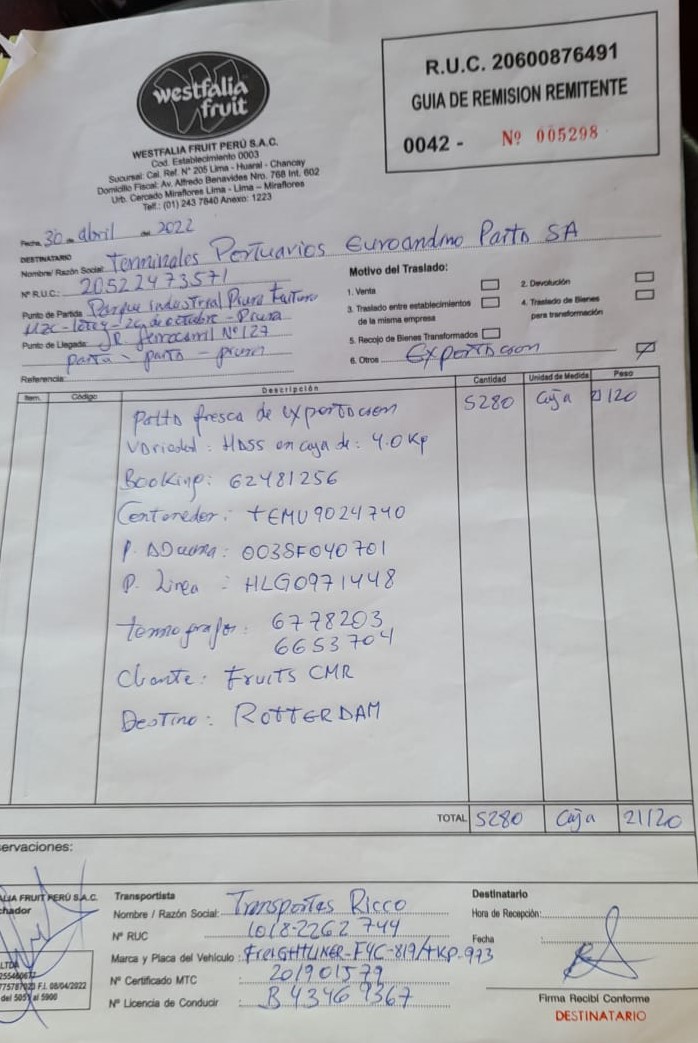 westfalia
fruit
WESTFALIA FRUIT PERÚ S.A.C.
Cod. Establecimiento 0003
Sucursal: Cal. Ref. N° 205 Lima - Huaral - Chancay
Domicilio Fiscal: Av. Alfredo Benavides Nro. 768 Int. 602
Urb. Cercado Miraflores Lima - Lima – Miraflores
Telf.: (01) 243 7840 Anexo: 1223
R.U.C. 20600876491
GUIA DE REMISION REMITENTE
0042 - Nº 005298
Fecha, 30 de abril de 2022
DESTINATARIO
Nombre/ Razón Social: Terminales Portuarios Euroandino Paita SA
N° R.U.C.: 20522473571
Punto de Partida Parque industrial Piura Futuro
Mzc - - 26 de octubre - Piura
Punto de Llegada: JR ferrocarril Nº 127
paita - paita - piura
Referencia:
Motivo del Traslado:
1. Venta
2. Devolución
3. Traslado entre establecimientos de la misma empresa
4. Traslado de Bienes para transformación
5. Recojo de Bienes Transformados
6. Otros Exportacion
Item. Código Descripción Cantidad Unidad de Medida Peso
Palta fresca de exportacion 5280 Caja 21120
Variedad: HASS en caja de: 4.0 Kp
Booking: 62481256
Contenedor: TEMU9024740
P. Aduana: 0038F040701
P. Linea : HLG0971448
Termografos: 6778203
6653704
Cliente: Fruits CMR
Destino: ROTTERDAM
TOTAL 5280 Caja 21120
ervaciones:
ALIA FRUIT PERÚ S.A.C.
chador
LTDA
F.I. 08/04/2022
del 505 al 5900
Transportista
Nombre / Razón Social: Transportes Ricco
N° RUC
Marca y Placa del Vehículo: Freightliner-FYC-819/TKP-973
N° Certificado MTC : 201901579
N° Licencia de Conducir B43469367
Destinatario
Hora de Recepción:
Fecha
Firma Recibí Conforme
DESTINATARIO